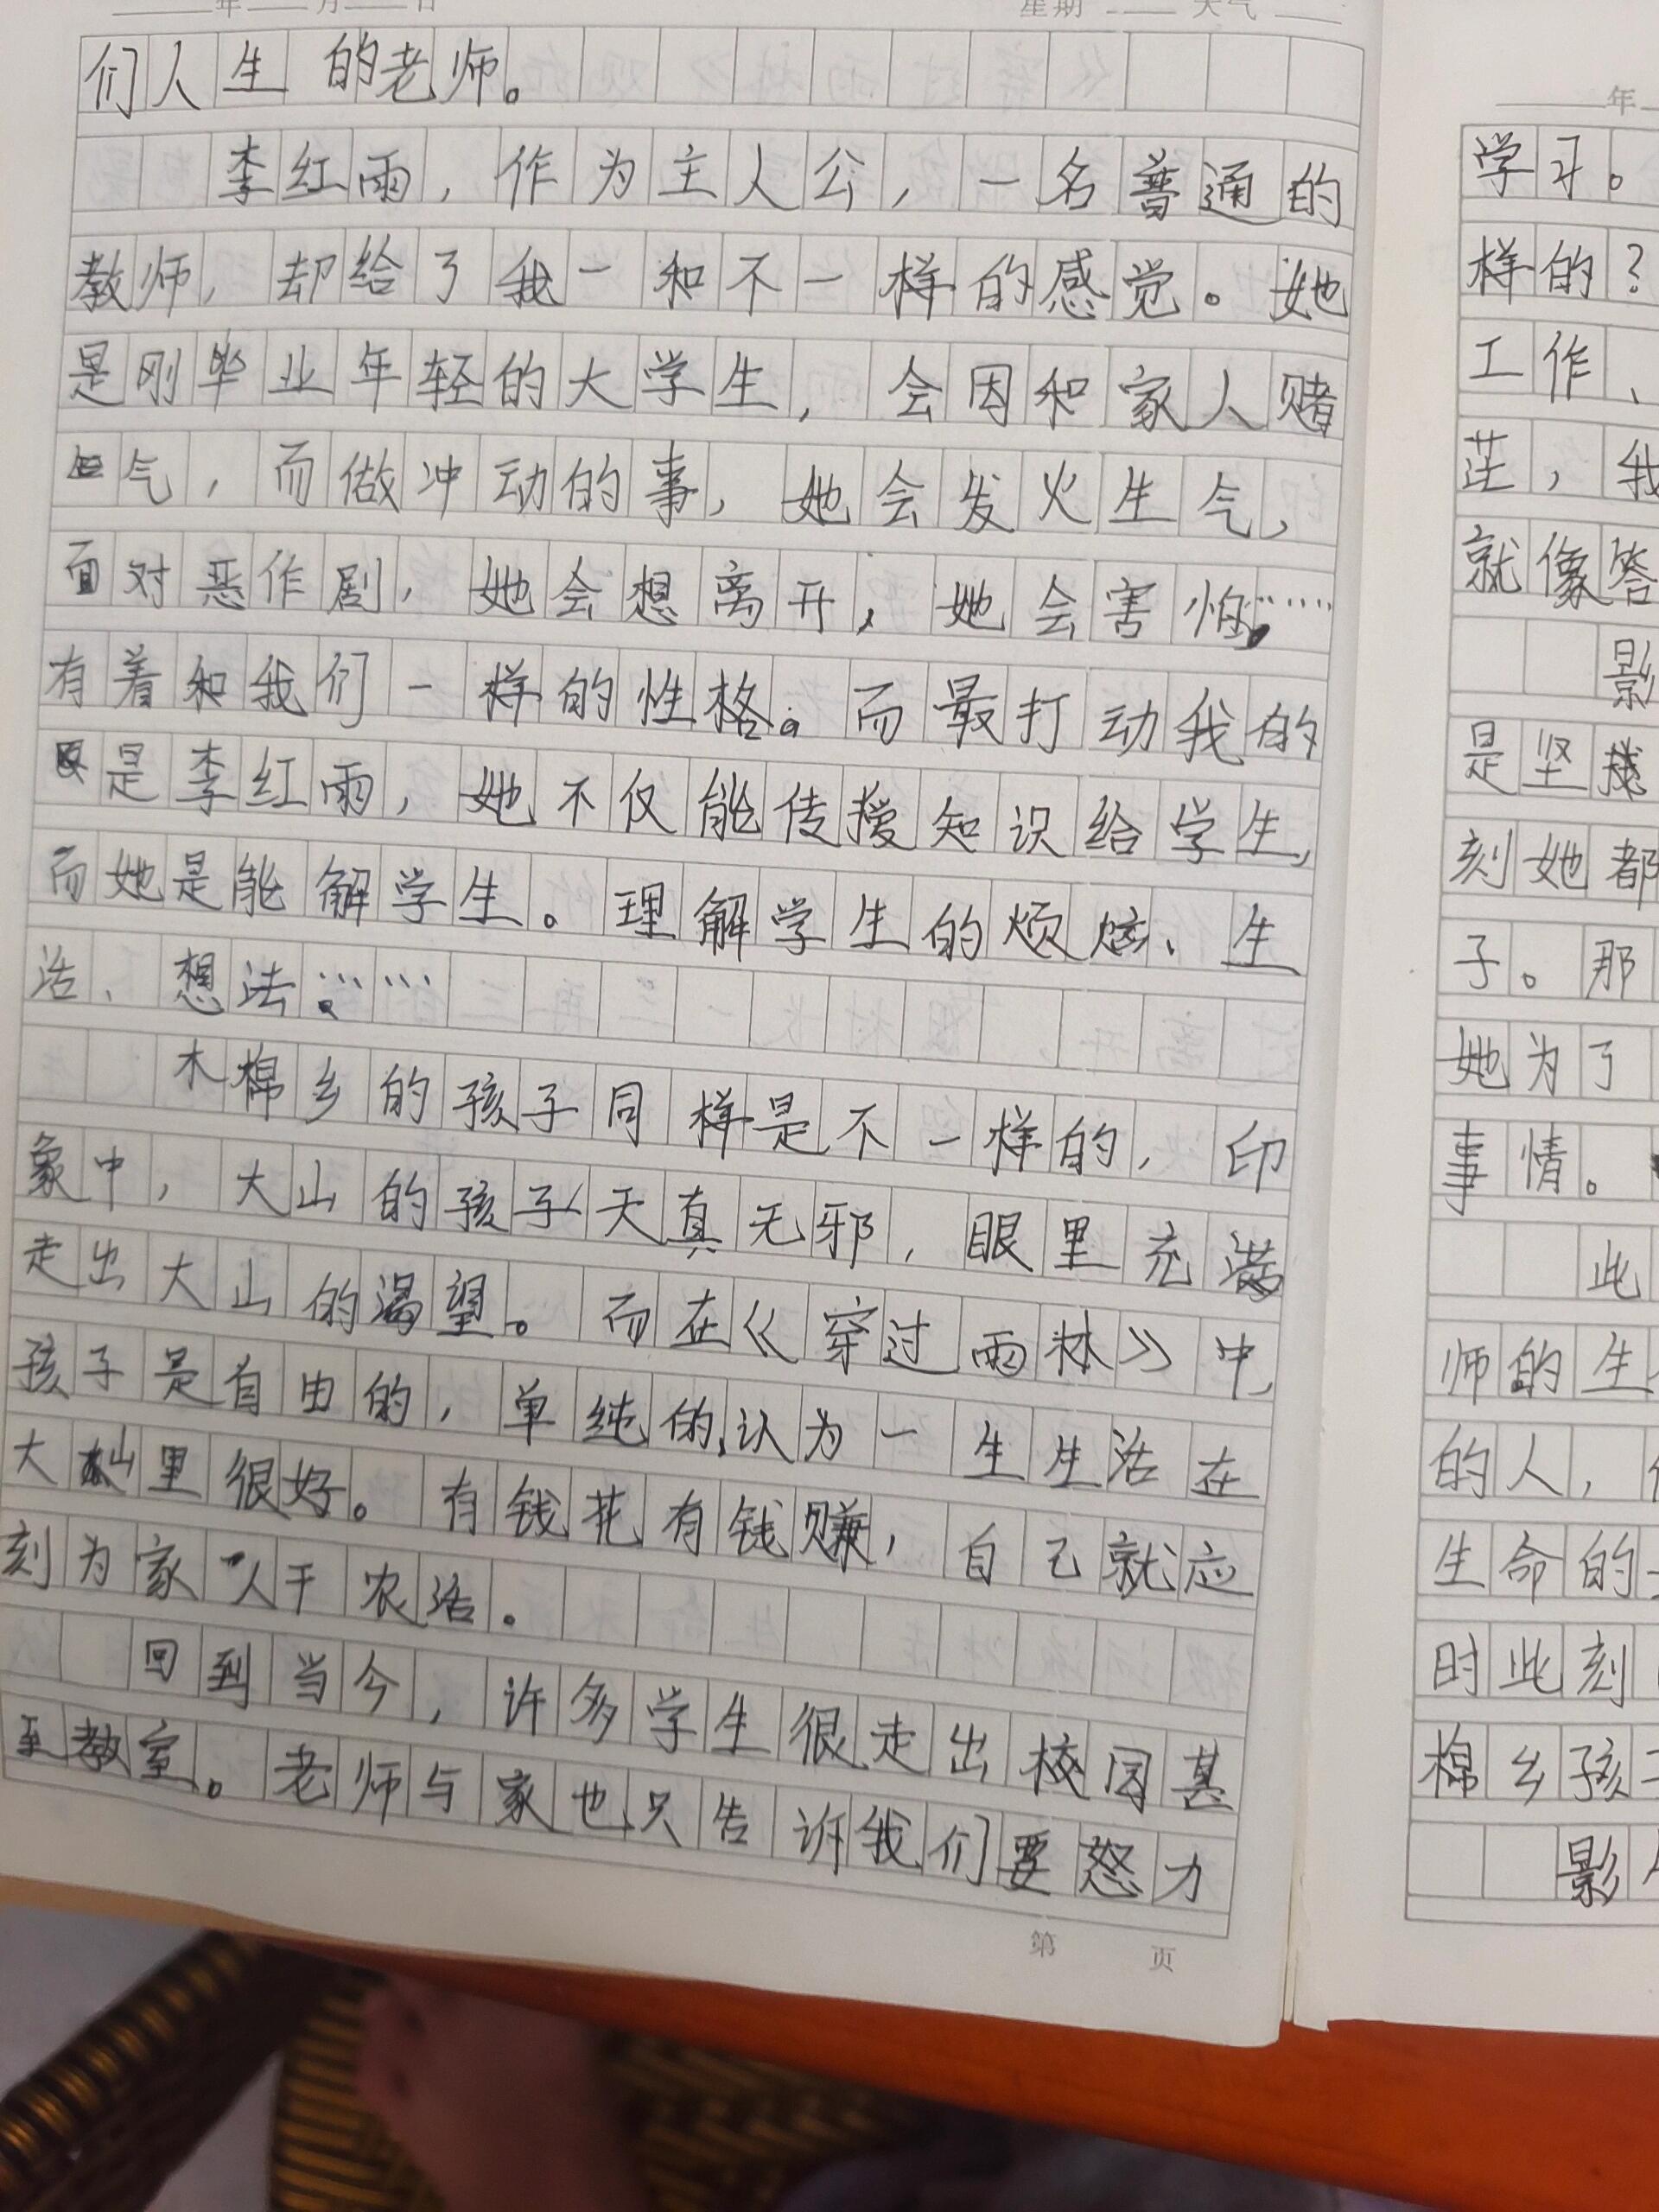 年 月 日 星期 天气
们人生的老师。
李红雨，作为主人公，一名普通的
教师，却给了我一和不一样的感觉。她
是刚毕业年轻的大学生，会因和家人赌
气，而做冲动的事，她会发火生气，
面对恶作剧，她会想离开，她会害怕……
有着和我们一样的性格。而最打动我的
是李红雨，她不仅能传授知识给学生，
而她是能解学生。理解学生的烦恼、生
活、想法……
木棉乡的孩子同样是不一样的，印
象中，大山的孩子天真无邪，眼里充满
走出大山的渴望。而在《穿过雨林》中，
孩子是自由的，单纯的认为一生生活在
大山里很好。有钱花有钱赚，自己就应
刻为家人干农活。
回到当今，许多学生很走出校园甚
至教室。老师与家也只告诉我们要怒力
第 页
年
学习。
样的？
工作、
茫，我
就像答
影
是坚
刻她都
子。那
她为了
事情。
此
师的生
的人，
生命的
时此刻
棉乡孩
影